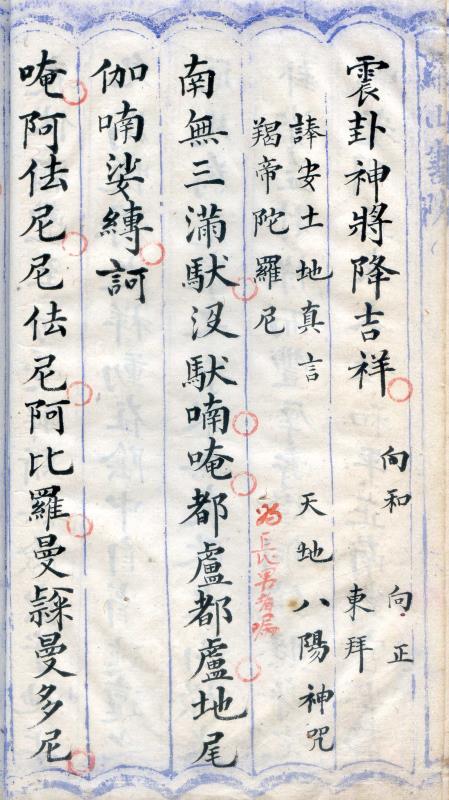 震卦神將降吉祥
向和 向正
東拜
諱安土地真言 天地八陽神咒
羯帝陀羅尼
為長男者屬
南無三滿馱沒馱喃唵都盧都盧地尾
伽喃娑縛訶
唵阿佉尼尼佉尼阿比羅曼隸曼多尼